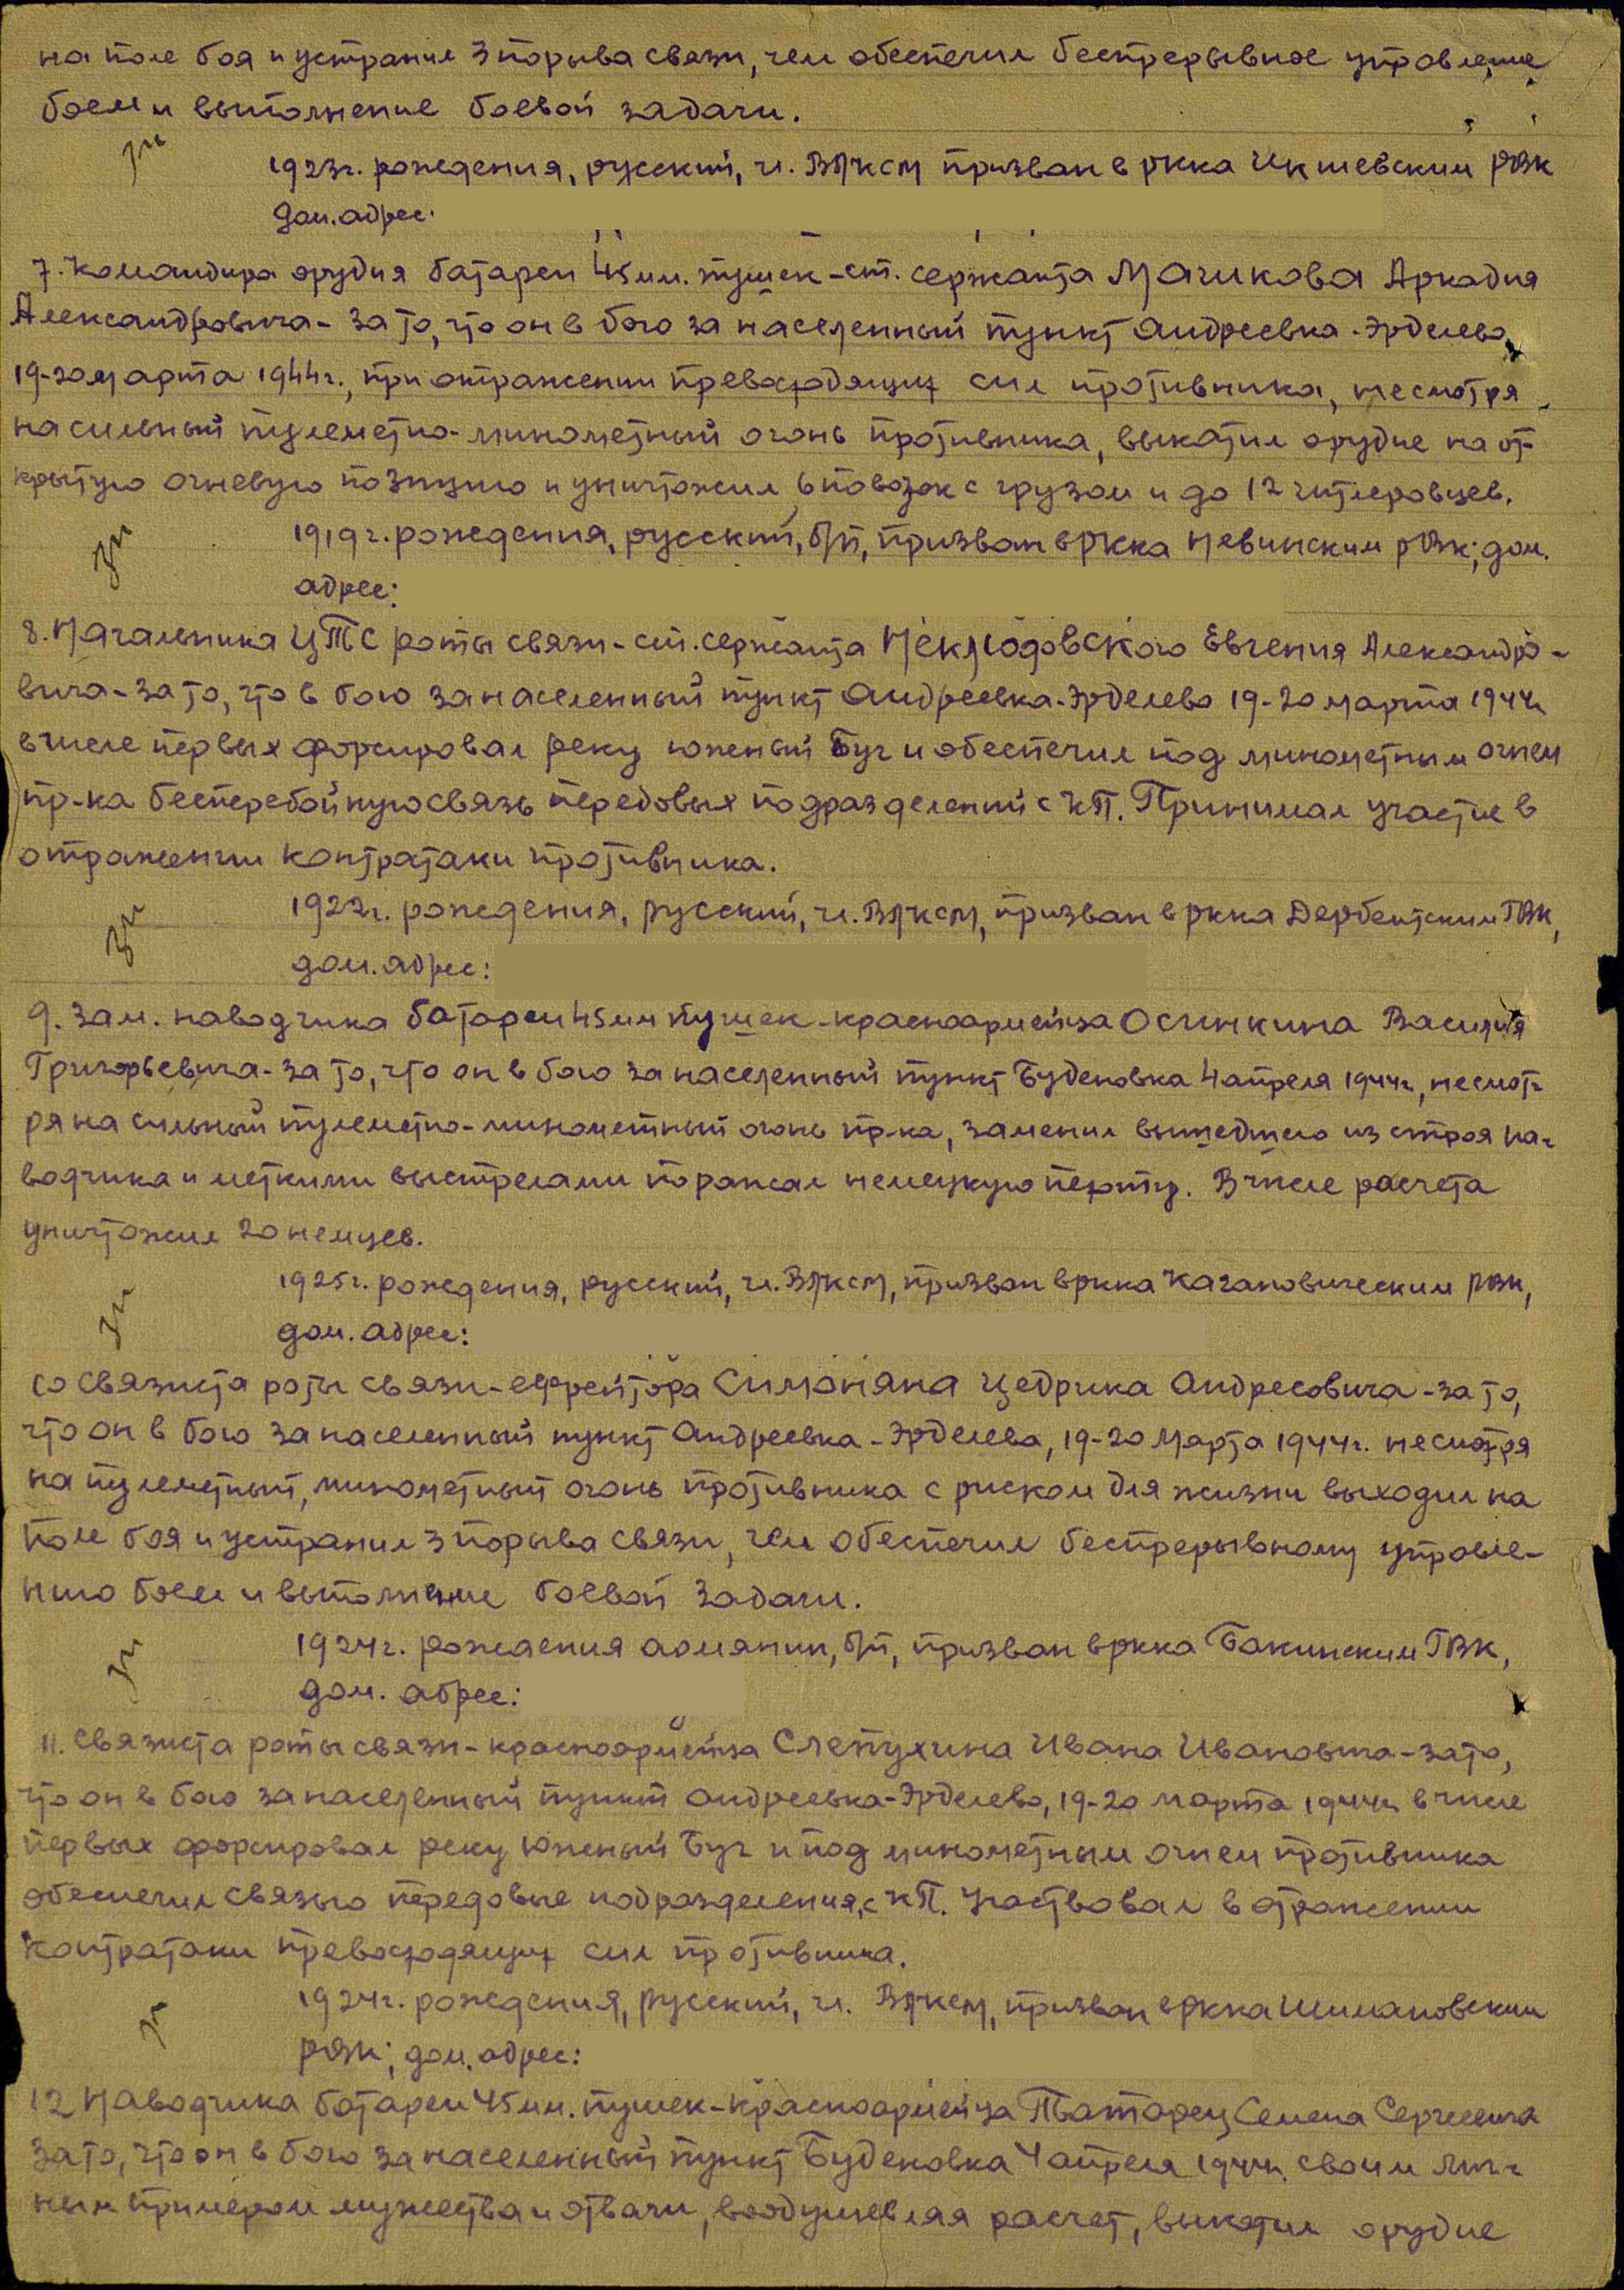 на поле боя и устранил 3 порыва связи, чем обеспечил беспрерывное управление
боем и выполнение боевой задачи.
1923г. рождения, русский, чл. ВЛКСМ призван в РККА Икшевским РВК
Дом. адрес:
7. Командира орудия батареи 45 мм. пушек - ст. сержанта Мачикова Аркадия
Александровича - за то, что он в бою за населенный пункт Андреевка-Эрделево
19-20 марта 1944г., при отражении превосходящих сил противника, несмотря
на сильный пулеметно-минометный огонь противника, выкатил орудие на от-
крытую огневую позицию и уничтожил 6 повозок с грузом и до 12 гитлеровцев.
1919г. рождения, русский, б/п, призван в РККА Невинским РВК; дом.
адрес:
8. Начальника ЦТС роты связи - ст. сержанта Неклюдовского Евгения Александро-
вича - за то, что в бою за населенный пункт Андреевка-Эрделево 19-20 марта 1944г
в числе первых форсировал реку Южный Буг и обеспечил под минометным огнем
пр-ка бесперебойную связь передовых подразделений с КП. Принимал участие в
отражении контратаки противника.
1922г. рождения, русский, чл. ВЛКСМ, призван в РККА Дербентским ГВК,
дом. адрес:
9. Зам. наводчика батареи 45 мм пушек - красноармейца Осинкина Василия
Григорьевича - за то, что он в бою за населенный пункт Буденовка 4 апреля 1944г, несмот-
ря на сильный пулеметно-минометный огонь пр-ка, заменил вышедшего из строя на-
водчика и меткими выстрелами поражал немецкую пехоту. В числе расчета
уничтожил 20 немцев.
1925г. рождения, русский, чл. ВЛКСМ, призван в РККА Кагановическим РВК,
дом. адрес:
10 Связиста роты связи - ефрейтора Симоняна Цедрика Андресовича - за то,
что он в бою за населенный пункт Андреевка-Эрделева, 19-20 марта 1944г. несмотря
на пулеметный, минометный огонь противника с риском для жизни выходил на
поле боя и устранил 3 порыва связи, чем обеспечил беспрерывному управле-
нию боем и выполнение боевой задачи.
1924г. рождения армянин, б/п, призван в РККА Бакинским ГВК,
дом. адрес:
11. Связиста роты связи - красноармейца Слепухина Ивана Ивановича - за то,
что он в бою за населенный пункт Андреевка-Эрделево, 19-20 марта 1944г в числе
первых форсировал реку Южный Буг и под минометным огнем противника
обеспечил связью передовые подразделения, с КП. Участвовал в отражении
контратаки превосходящих сил противника.
1924г. рождения, русский, чл. ВЛКСМ, призван в РККА Шимановским
РВК; дом. адрес:
12 Наводчика батареи 45 мм. пушек - красноармейца Татарец Семена Сергеевича
за то, что он в бою за населенный пункт Буденовка 4 апреля 1944г. своим лич-
ным примером мужества и отваги, воодушевляя расчет, выкатил орудие